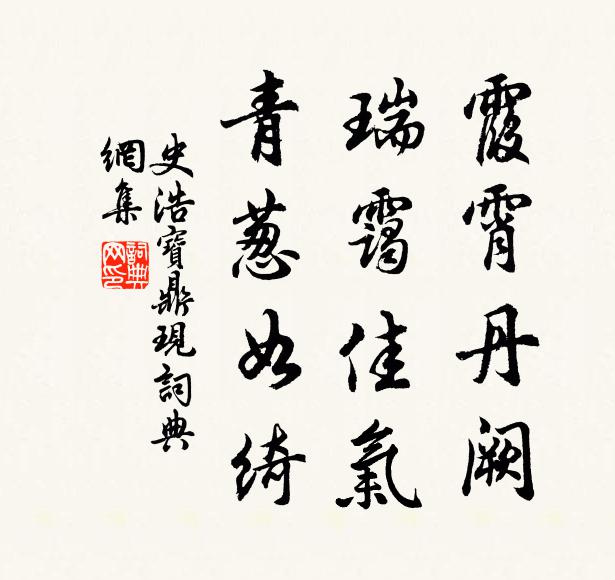 霞霄丹闕
瑞靄佳氣
青蔥如綺
史浩寶鼎現詞典
網集
詞典
网印